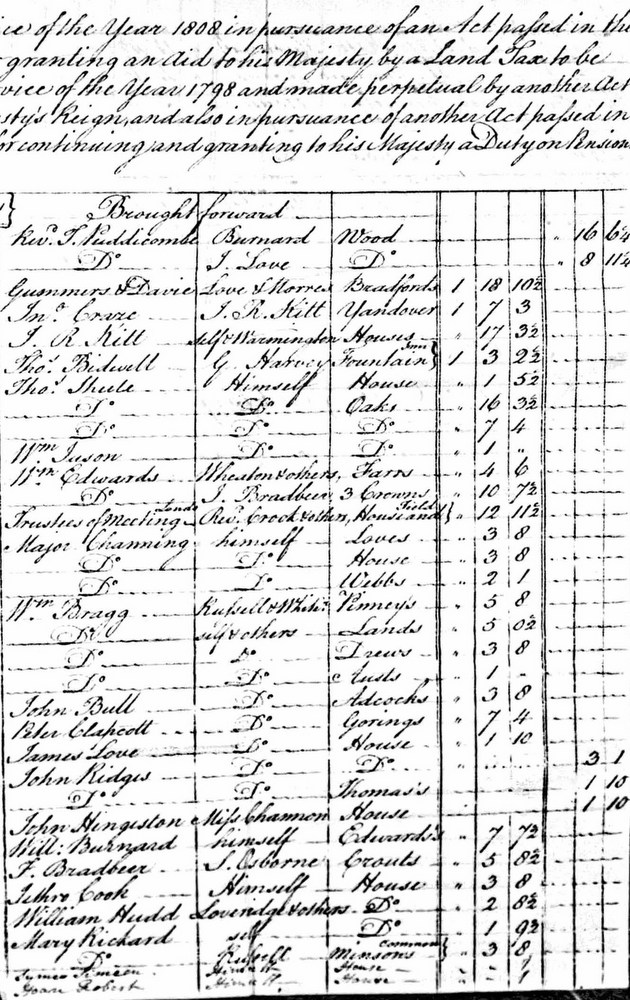 ice of the Year 1808 in pursuance of an Act passed in the
granting an Aid to his Majesty by a Land Tax to be
vice of the Year 1798 and made perpetual by another Act
esty's Reign, and also in pursuance of another Act passed in
for continuing and granting to his Majesty a Duty on Pension
Brought forward
Revd. T. Puddicombe Burnard Wood " 16 6¼
Do J. Love Do " 8 11¼
Gummers & Davie Love & Norres Bradfords 1 18 10½
Jno. Craze J. R. Kitt Yandover 1 7 3
J. R. Kitt self & Warmington Houses " 17 3½
Thos. Bidwell G. Harvey Fountain Inn } 1 3 2½
Thos. Steele Himself House " 1 5½
Do Do Oaks " 16 3½
Do Do Do " 7 4
Wm Juson Do Do " 1 "
Wm Edwards Wheaton & others, Farrs " 4 6
Do J. Bradbeer 3 Crowns " 10 7½
Trustees of Meeting Lands Revd. Crook & others, House and Field } " 12 11½
Major Channing himself Loves " 3 8
Do Do House " 3 8
Do Do Webbs " 2 1
Wm Bragg Russell & White Pinney's " 5 8
Do self & others Lands " 5 0½
Do Do Drews " 3 8
Do Do Austs " 1 -
John Bull Do Adcocks " 3 8
Peter Clapcott Do Gorings " 7 4
James Love Do House " 1 10
John Ridges Do Do " 3 1
Do Do Thomas's 1 10
John Hingston Miss Channon House 1 10
Will: Burnard himself Edwards's " 7 7½
F. Bradbeer S. Osborne Crouts " 5 8½
Jethro Cook Himself House " 3 8
William Hudd Loveridge & others Do " 2 8½
Mary Richard self Do " 1 9½
Do Russell Minsons common } " 3 8
Himself House " - 1
Hoare Robert Himself House " - 1